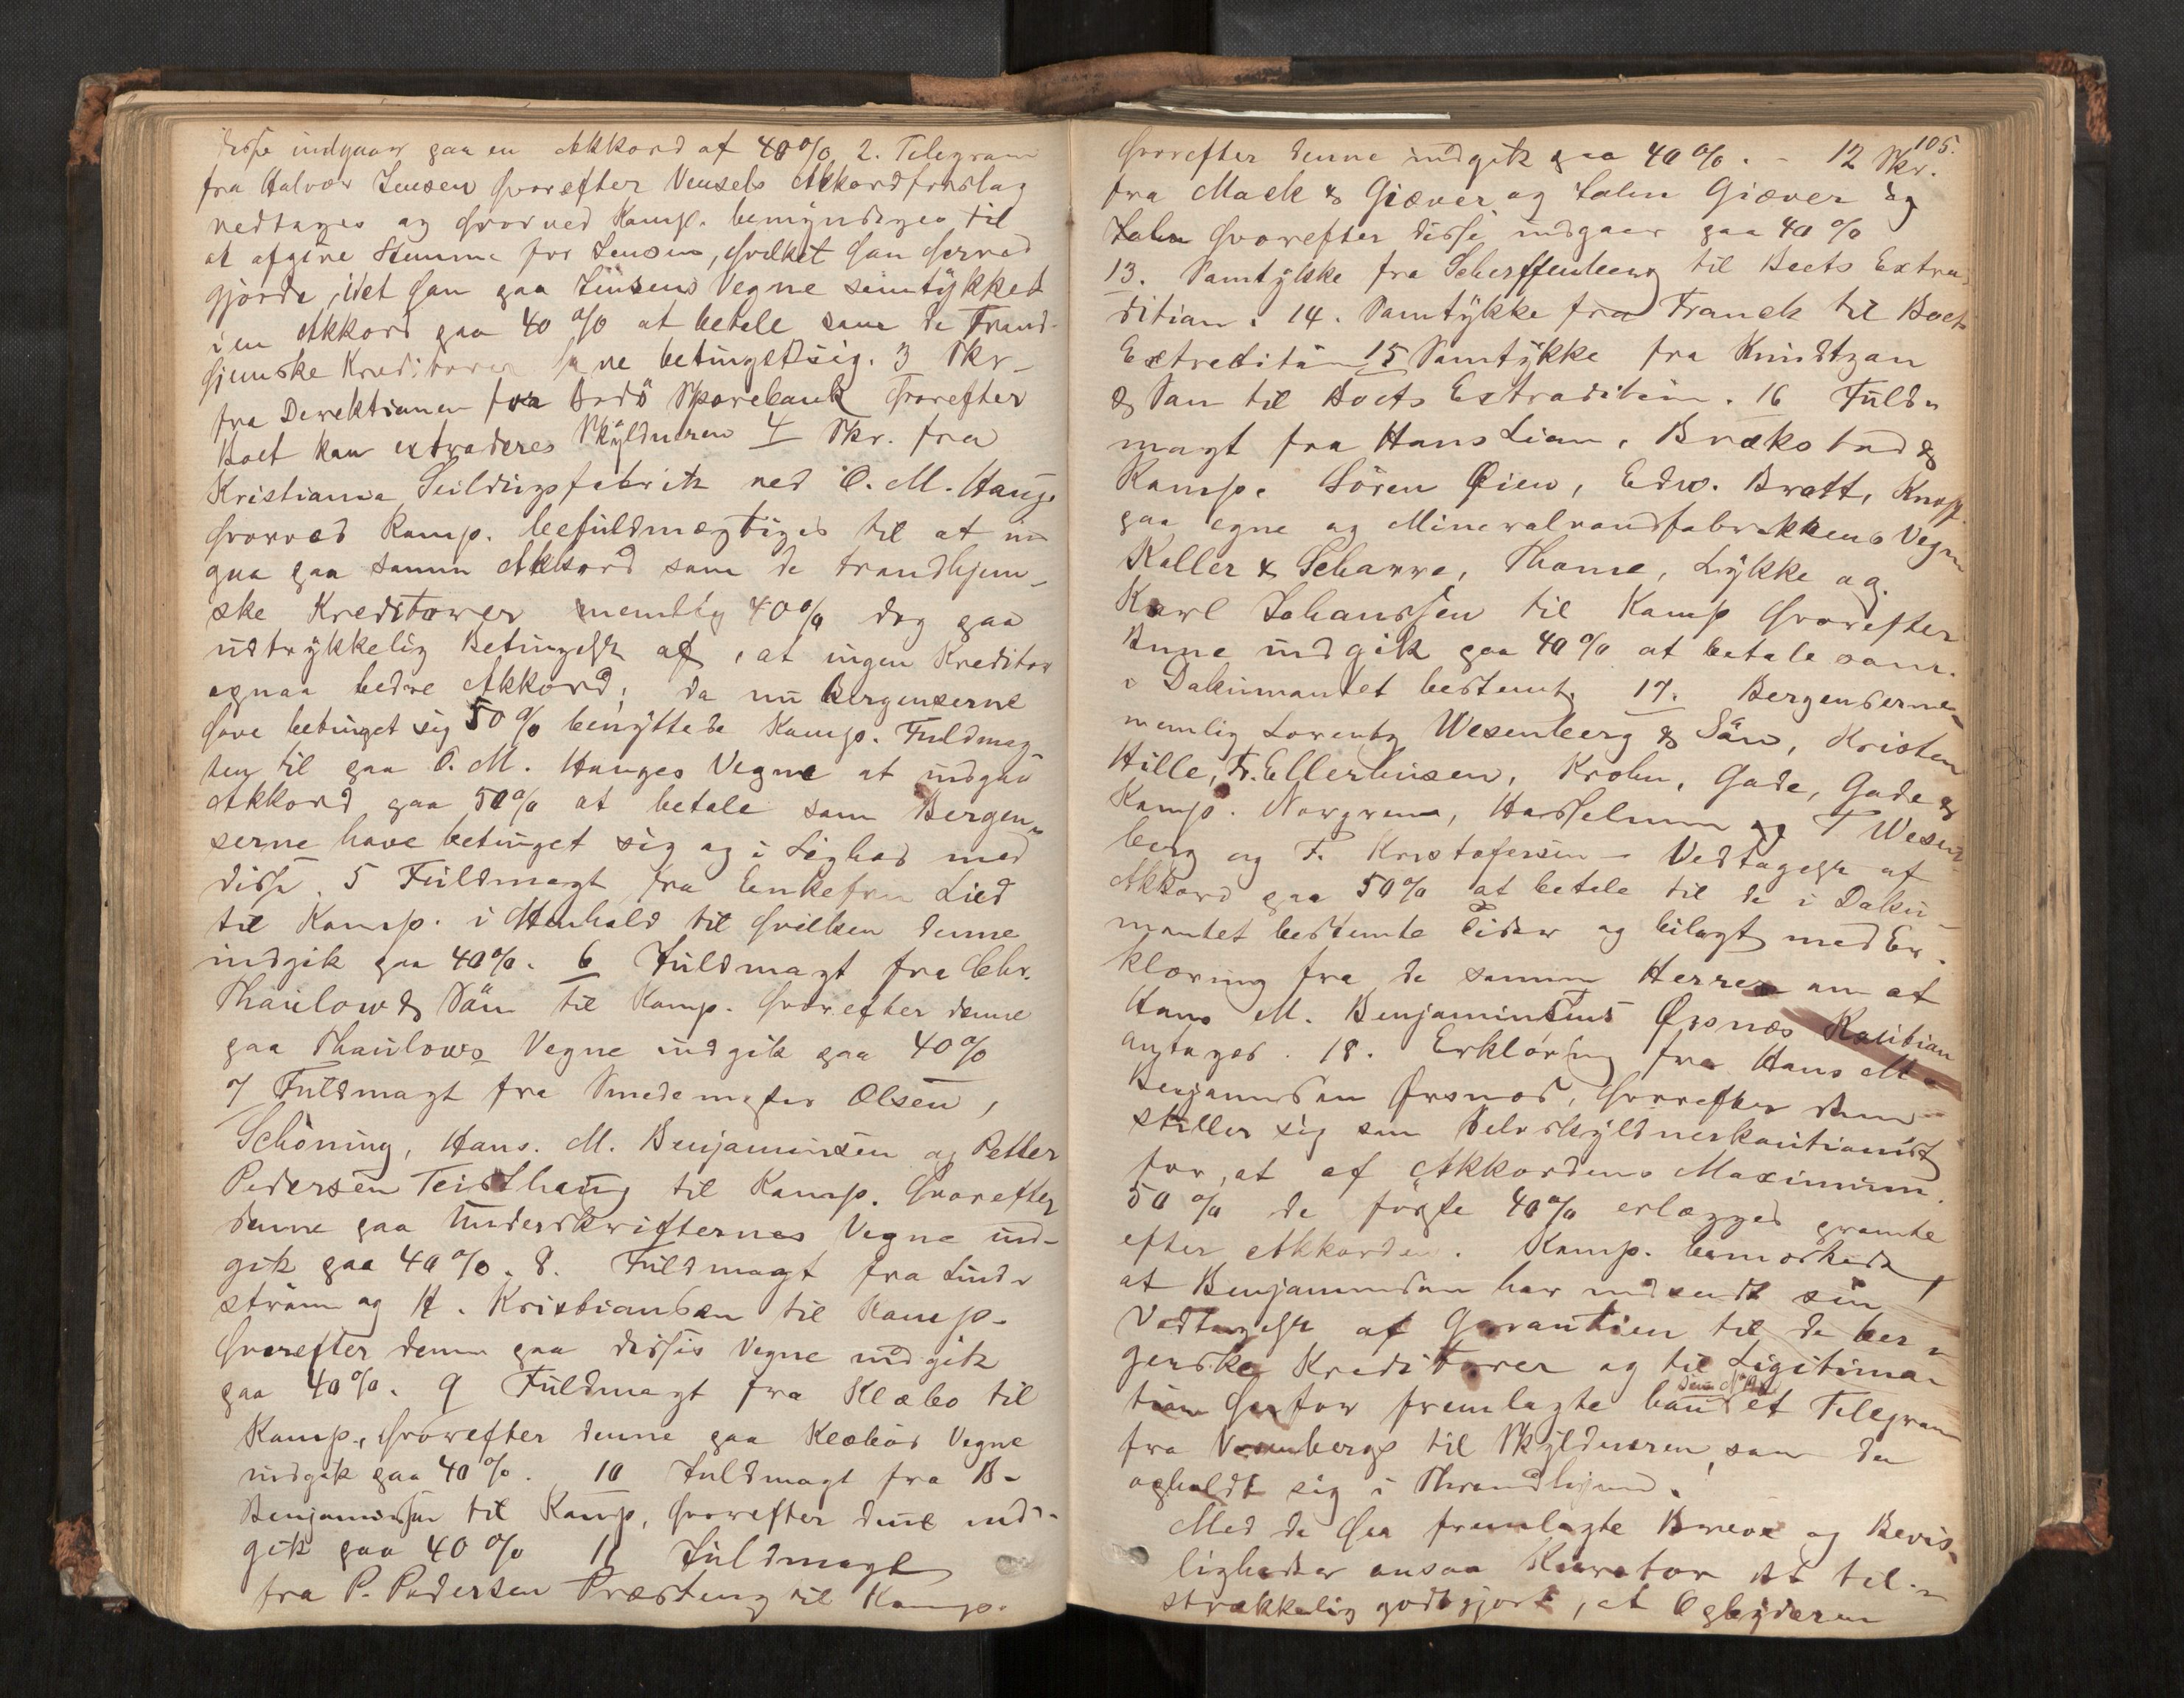 disse indgaar paa en Akkord af 40% 2. Telegram
fra Halvor Jensen hvorefter Akkordforslag
vedtages og hvorved Kamp. bemyndiges til
at afgive Stemme for Jensen, hvilket han herved
gjorde, idet han paa Jensens Vegne samtykked
i en Akkord paa 40% at betale som de Trond-
hjemske Kreditorer have betinget sig. 3 Skr.
fra Direktionen for Bodö Sparebank hvorefter
Boet kan extraderes Skyldneren 4 Skr. fra
Kristiania Seildugsfabrik ved O. M. Hauge
hvorved Kamp. befuldmægtiges til at ind
gaa paa samme Akkord som de trondhjem-
ske Kreditorer nemlig 40% dog paa
udtrykkelig Betingelse af, at ingen Kreditor
opnaa bedre Akkord; da nu Bergenserne
have betinget sig 50% benyttede Kamp. Fuldmag-
ten til paa O. M. Hauges Vegne at indgaa
Akkord paa 50% at betale som Bergen-
serne have betinget sig og i Lighed med
disse. 5 Fuldmagt fra Enkefru Lied
til Kamp. i Henhold til hvilken denne
indgik paa 40%. 6 Fuldmagt fra Chr.
Thaulow & Sön til Kamp. hvorefter denne
paa Thaulows Vegne indgik paa 40%
7 Fuldmagt fra Smedemester Olsen,
Schöning, Hans. M. Benjaminsen og Petter
Pedersen Teisthaug til Kamp. hvorefter
denne paa Underskrifternes Vegne ind-
gik paa 40%. 8. Fuldmagt fra Lind-
ström og H. Kristiansen til Kamp.
hvorefter denne paa disses Vegne indgik
paa 40%. 9 Fuldmagt fra Klæbo til
Kamp., hvorefter denne paa Klæbos Vegne
indgik paa 40%. 10 Fuldmagt fra B.
Benjaminsen til Kamp, hvorefter denne ind-
gik paa 40% 11 Fuldmagt
fra P. Pedersen Præsteng til Kamp.
105.
hvorefter denne indgik paa 40%. - 12 Skr.
fra Mack & Giæver og John Giæver og
John hvorefter disse indgaar paa 40%
13. Samtykke fra Scherffenberg til Boets Extra
dition. 14. Samtykke fra Franck til Boets
Extradition 15 Samtykke fra Knudtzon
& Søn til Boets Extradition. 16 Fuld-
magt fra Hans Lian, Brækstad &
Komp. Sören Øien, Edw. Bratt, Knoff
paa egne og Mineralvandfabrikkens Vegne
Koller & Scharre, Thome, Lykke og
Karl Johanssen til Kamp hvorefter
denne indgik paa 40% at betale som
i Dokumentet bestemt. 17. Bergenserne
nemlig Lorentz Wesenberg & Sön, Kristen
Hille, Fr. Ellerhusen, Krohn, Gade, Gade &
Komp. Norgren, Hasselmann og T Wesen-
berg og F. Kristofersen - Vedtagelse af
Akkord paa 50% at betale til de i Doku-
mentet bestemte Tider og bilagt med Er-
klæring fra de samme Herrer om at
Hans M. Benjaminsens Ørsnæs Kaution
antages. 18. Erklæring fra Hans M.
Benjaminsen Ørsnæs, hvorefter denne
stiller sig som Selvskyldnerkautionist
for, at af Akkordens Maximum
50% de förste 40% erlægges promte
efter Akkorden. Kamp. bemærkede
at Benjaminsen har indsendt sin
Vedtagelse af Garantien til de ber-
genske Kreditorer og til Legitima-
tion herfor fremlagte han et Telegram
fra til Skyldneren, som da
opholdt sig i Throndhjem.
Med de saa fremlagte Breve og Bevis-
ligheder ansaa Kurator det til-
strækkelig godtgjort, at Opbyderen